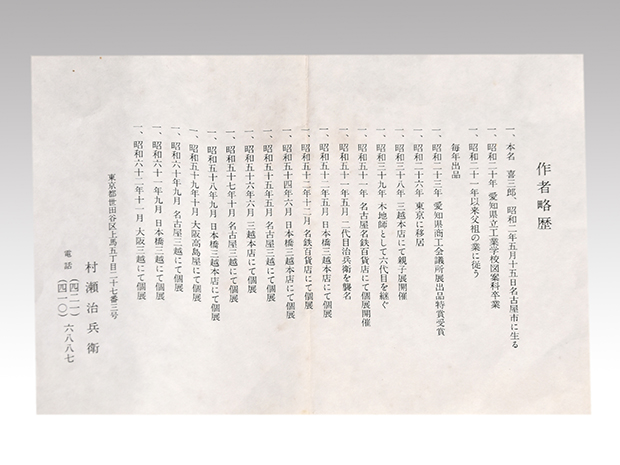 作者略歴
一、本名 喜三郎、昭和二年五月十五日名古屋市に生る
一、昭和二十年 愛知県立工業学校図案科卒業
一、昭和二十一年以来父祖の業に従う
一、昭和二十三年 愛知県商工会議所展出品特賞受賞
毎年出品
一、昭和二十六年 東京に移居
一、昭和三十八年 三越本店にて親子展開催
一、昭和三十九年 木地師として六代目を継ぐ
一、昭和五十一年五月 二代目治兵衛を襲名
一、昭和五十一年 名古屋名鉄百貨店にて個展開催
一、昭和五十二年五月 日本橋三越本店にて個展
一、昭和五十二年十二月 名鉄百貨店にて個展
一、昭和五十四年六月 日本橋三越本店にて個展
一、昭和五十五年五月 名古屋三越にて個展
一、昭和五十六年六月 三越本店にて個展
一、昭和五十七年十月 名古屋三越にて個展
一、昭和五十八年九月 日本橋三越本店にて個展
一、昭和五十九年十月 大阪高島屋にて個展
一、昭和六十年九月 名古屋三越にて個展
一、昭和六十一年九月 日本橋三越にて個展
一、昭和六十二年十一月 大阪三越にて個展
東京都世田谷区上馬五丁目二十七番三号
村瀬治兵衛
電話 (四二一)六八八七
(四一〇)